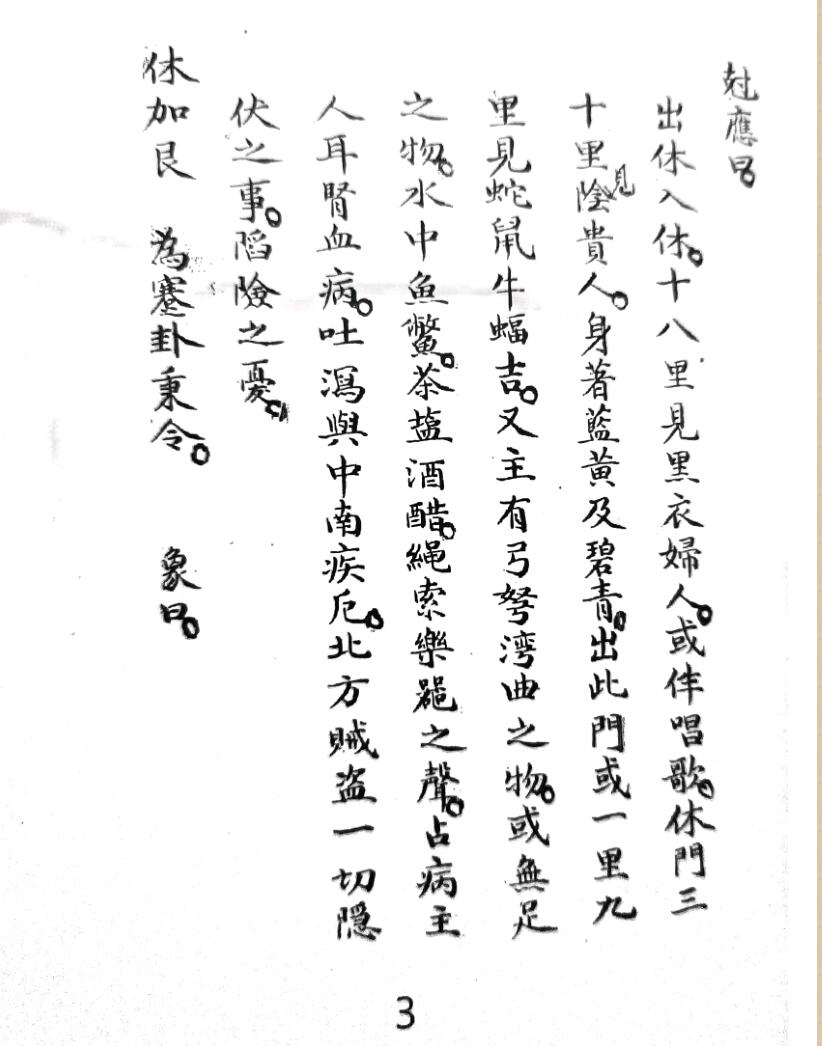 尅應曰。
出休入休。十八里見黑衣婦人。或伴唱歌。休門三
十里陰見貴人。身著藍黃及碧青。出此門或一里九
里見蛇鼠牛蝠吉。又主有弓弩湾曲之物。或無足
之物。水中魚鱉。茶盐酒醋。繩索樂器之聲。占病主
人耳腎血病。吐瀉與中南疾厄。北方賊盜一切隱
伏之事。陷險之憂。
休加艮 為蹇卦秉令。 象曰。
3